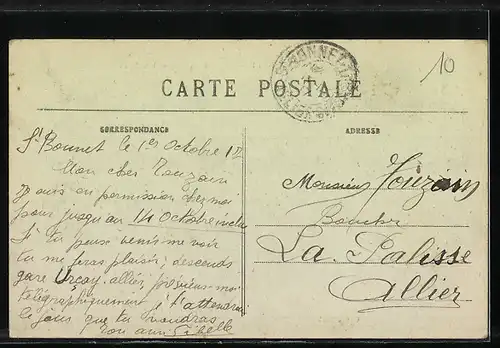 10
CARTE POSTALE
CORRESPONDANCE
ADRESSE
St Bonnet le 1er Octobre 12
Mon cher Touzain
Je suis en permission chez moi
pour jusqu'au 14 Octobre inclus
Si tu peux venir me voir
tu me feras plaisir; descends
gare Urçay-allier, préviens-moi
télégraphiquement je t'attendrai
le jour que tu voudras
Ton ami
Monsieur Touzain
Boucher
La Palisse
Allier